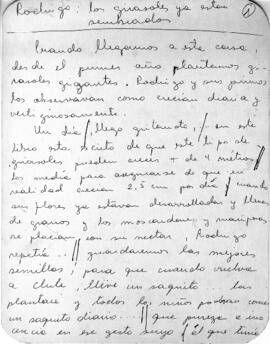 Rodrigo: los girasoles ya estan
sembrados
1
Cuando llegamos a esta casa,
desde el primer año plantamos gi-
rasoles gigantes. Rodrigo y sus primos
los observavan como crecian diaria y
vertiginosamente.
Un dia, llego gritando, // en este
libro sta. escrito de que este tipo de
girasoles pueden crecer + de 4 metros //
los media para asegurarse de que en
realidad crecian 2,5 cm por dia // cuando
sus flores ya estavan desarrolladas y llenas
de granos y los moscardones y mariposas
se placian con su nectar, Rodrigo
repetia .. // guardaremos las mejores
semillas, para que cuando vuelva
a chile, lleve un saquito las
plantare y todos los niños podran comer
un saquito diario... // que pureza e ino
cencia en ese gesto suyo, el que tuvo